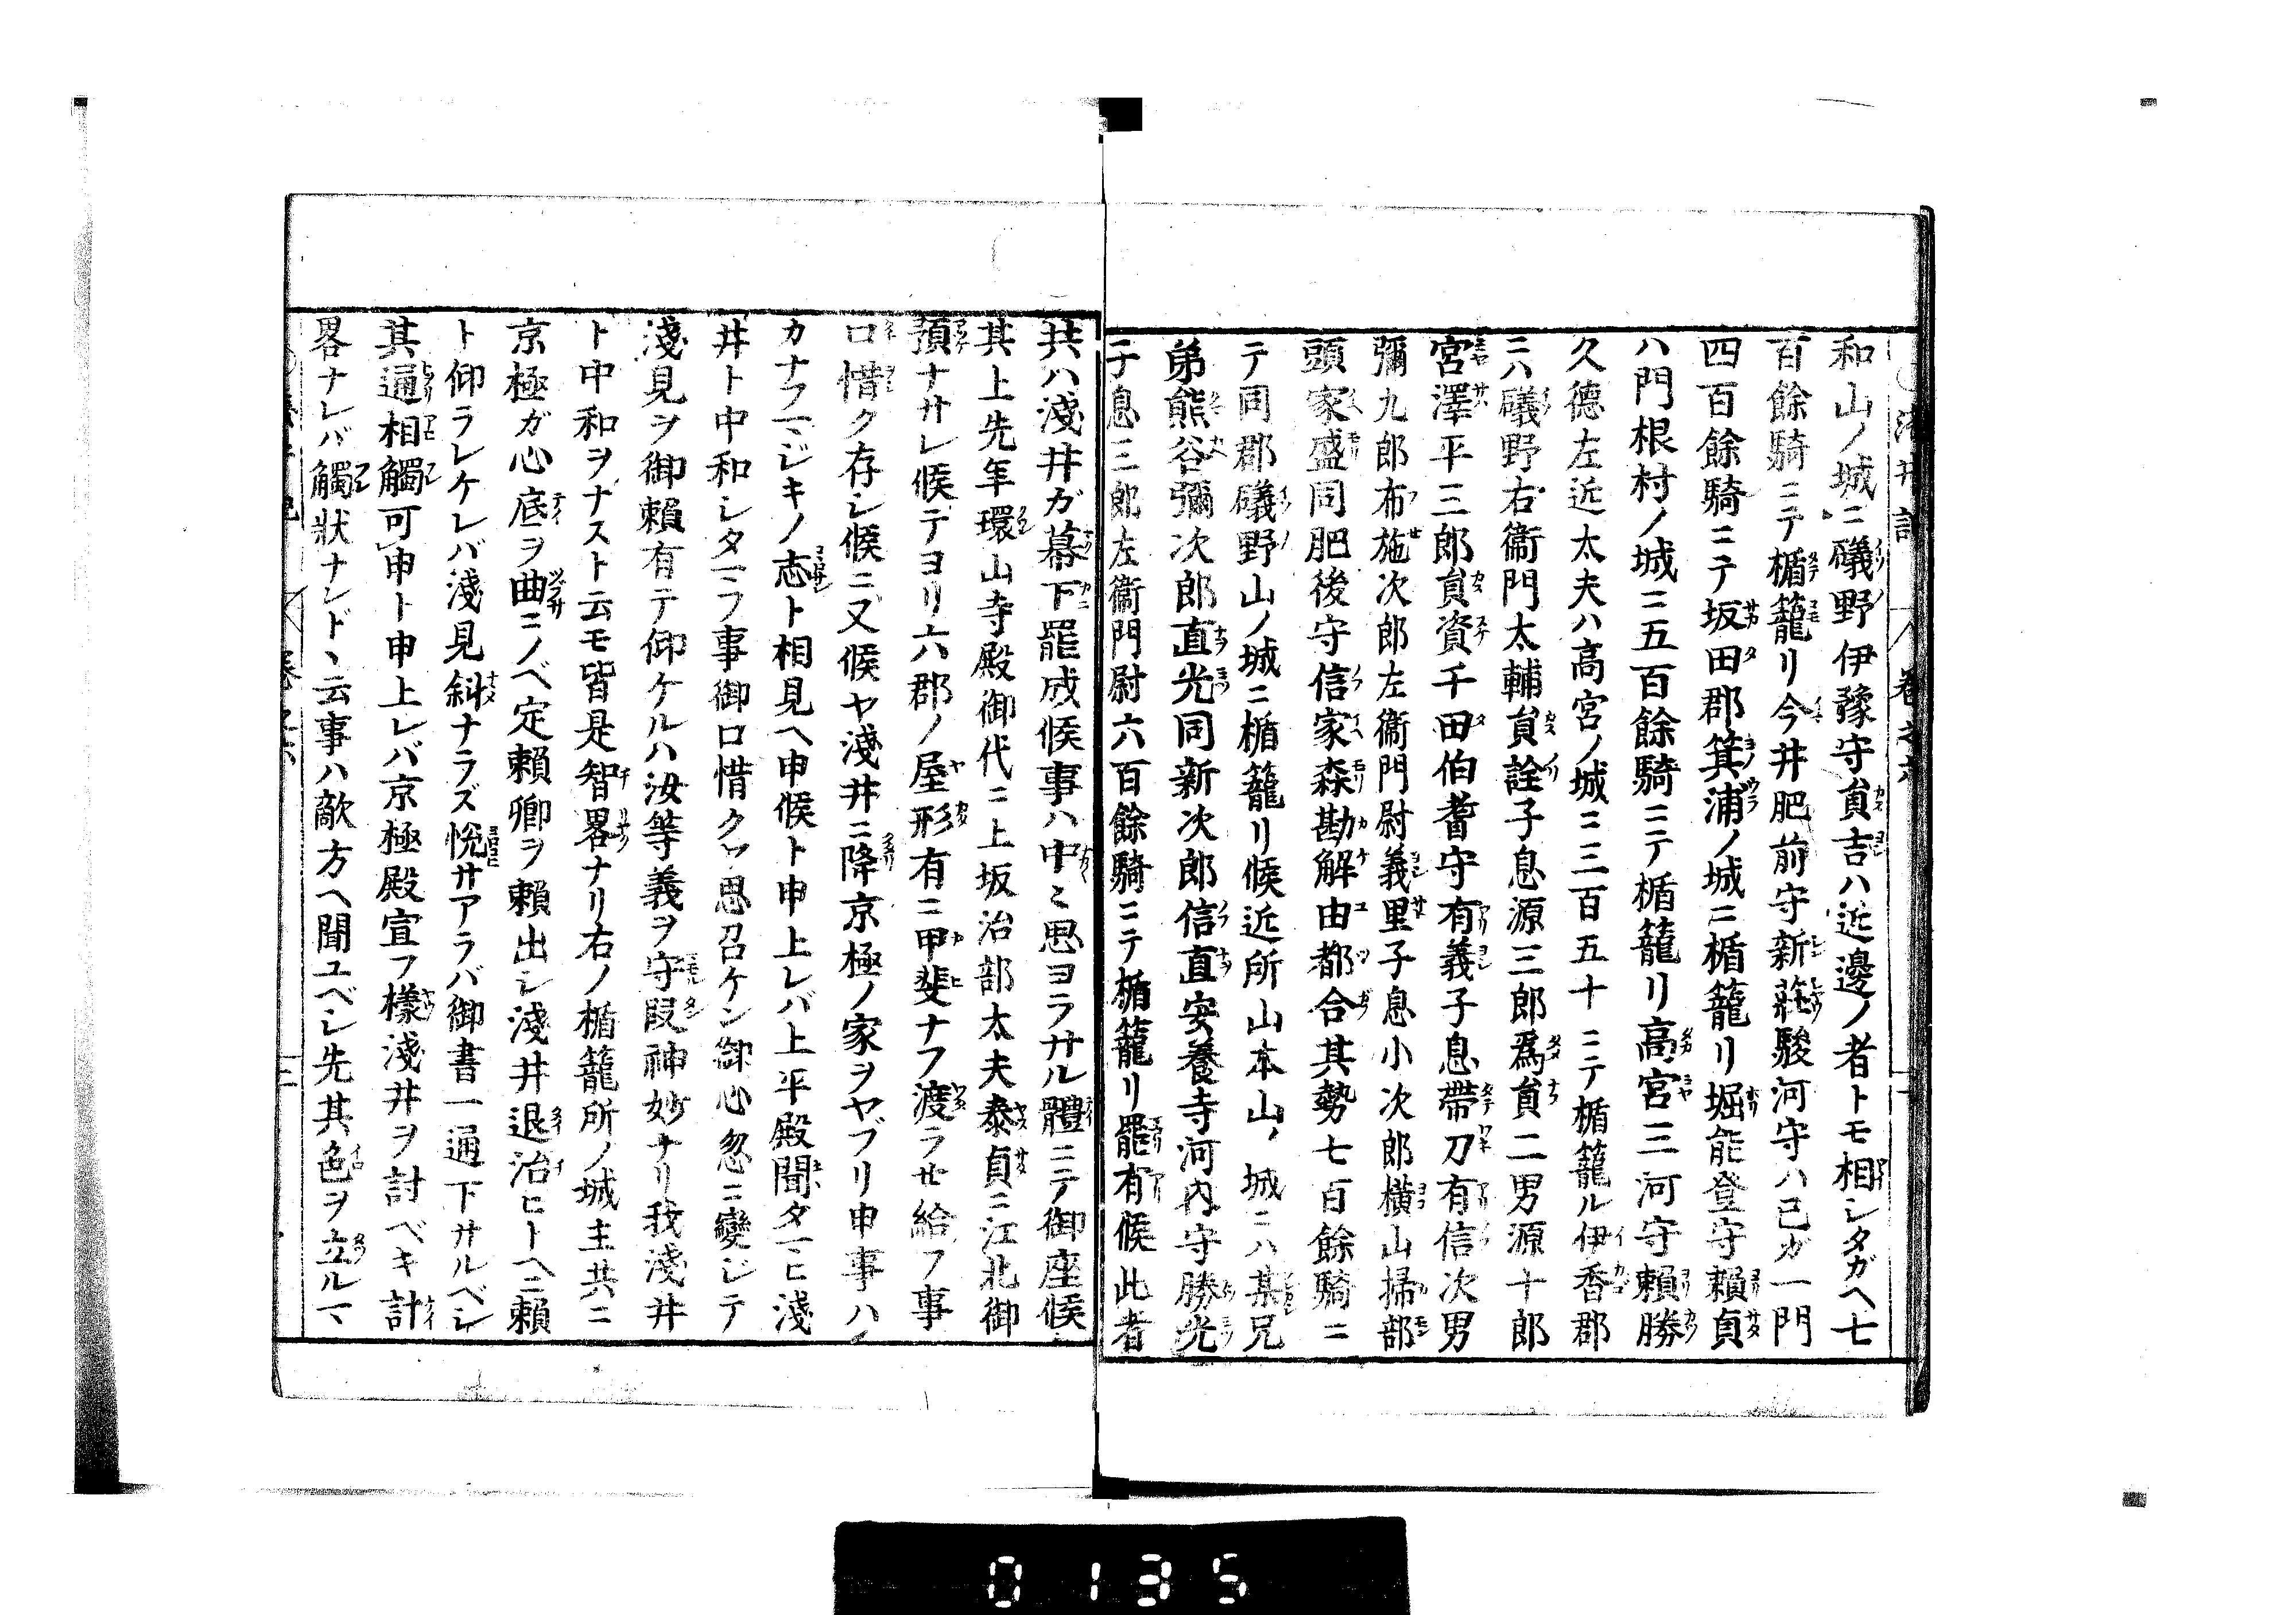 和山ノ城ニ礒野伊豫守員吉ハ近邊ノ者トモ相シタガヘ七
百餘騎ニテ楯籠リ今井肥前守新莊駿河守ハ已ガ一門
四百餘騎ニテ坂田郡箕浦ノ城ニ楯籠リ堀能登守賴貞
ハ門根村ノ城ニ五百餘騎ニテ楯籠リ高宮三河守賴勝
久德左近太夫ハ高宮ノ城ニ三百五十ニテ楯籠ル伊香郡
ニハ礒野右衞門太輔員詮子息源三郎爲員二男源十郎
宮澤平三郎員資千田伯耆守有義子息帶刀有信次男
彌九郎布施次郎左衞門尉義里子息小次郎橫山掃部
頭家盛同肥後守信家森勘解由都合其勢七百餘騎ニ
テ同郡礒野山ノ城ニ楯籠リ候近所山本山ノ城ニハ某兄
弟熊谷彌次郎直光同新次郎信直安養寺河内守勝光
子息三郎左衞門尉六百餘騎ニテ楯籠リ罷有候此者
共ハ淺井ガ幕下ニ罷成候事ハ中〻思ヨラサル體ニテ御座候
其上先年環山寺殿御代ニ上坂治部太夫泰貞ニ江北御
預ナサレ候テヨリ六郡ノ屋形有ニ甲斐ナフ渡ラセ給フ事
口惜ク存シ候ニ又候ヤ淺井ニ降京極ノ家ヲヤブリ申事ハ
カナフマジキノ志ト相見ヘ申候ト申上レバ上平殿聞タマヒ淺
井ト中和シタマフ事御口惜クヤ思召ケン御心忽ニ變ジテ
淺見ヲ御賴有テ仰ケルハ汝等義ヲ守段神妙ナリ我淺井
ト中和ヲナスト云モ皆是智畧ナリ右ノ楯籠所ノ城主共ニ
京極ガ心底ヲ曲ニノベ定賴卿ヲ賴出シ淺井退治ヒトヘニ賴
ト仰ラレケレバ淺見斜ナラズ悅サアラバ御書一通下サルベシ
其通相觸可申ト申上レバ京極殿宣フ樣淺井ヲ討ベキ計
畧ナレバ觸狀ナンドヽ云事ハ敵方ヘ聞ユベシ先其色ヲ立ルマ
0135